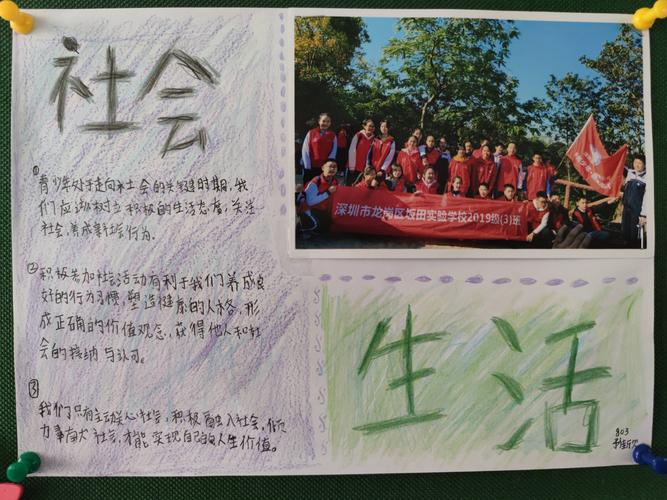 社会
①
青少年处于走向社会的关键时期,我
们应该树立积极的生活态度,关注
社会,养成亲社会行为.
② 积极参加社会活动有利于我们养成良
好的行为习惯,塑造健康的人格,形
成正确的价值观念,获得他人和社
会的接纳与认可。
③
我们只有主动关心社会,积极融入社会,倾
力奉献社会,才能实现自己的人生价值。
深圳市龙岗区坂田实验学校2019级(3)班
生活
803